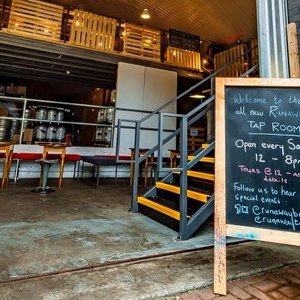 Welcome to the
all new RUNAW
TAP ROOM
Open every Sa
12 - 8p
Tours @ 12 - as
details
Follow us to hear
special events
@runawayb
@runaway